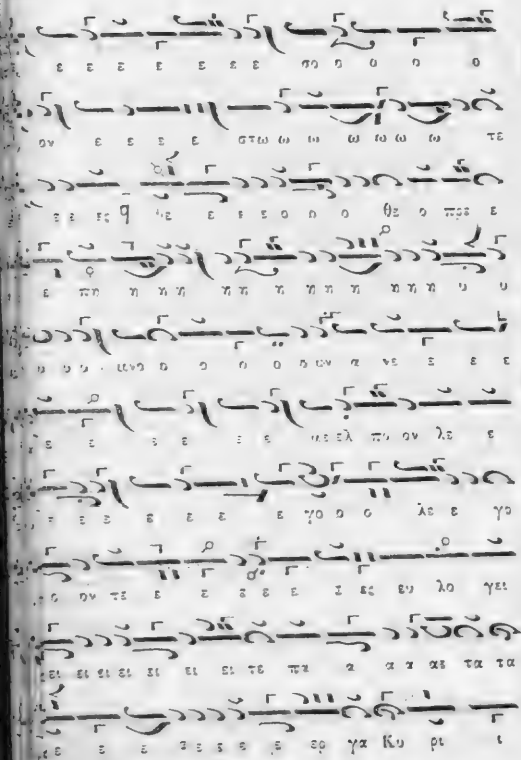 ε ε ε ε ε ε ε σο ο ο ο ο
ον ε ε ε ε στω ω ω ω ω ω ω τε
ε ε ες με ε ε ε ο ο ο θε ο πρε ε
ε πη η η η η η η η η η η η η υ υ
υ υ υ μνο ο ο ο ο ο ων α νε ε ε ε
ε ε ε ε ε ε με ελ πο ον λε ε
ε ε ε ε ε ε ε γο ο ο λε ε γο
ο ον τε ε ε ε ε ε ε ες ευ λο γει
ει ει ει ει ει ει ει τε πα α α α αε τα τα
ε ε ε ε ε ε ε ε ερ γα Κυ ρι ι